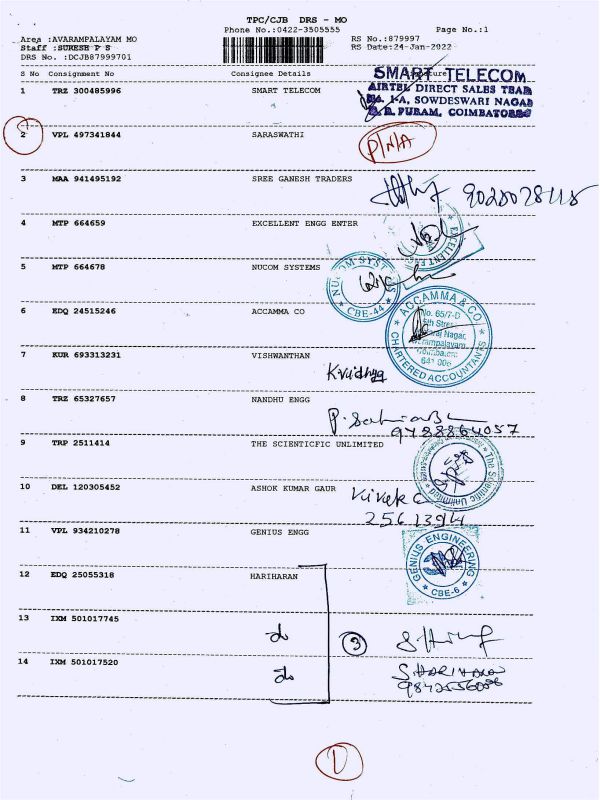 TPC/CJB DRS - MO
Phone No.:0422-3505555 Page No.:1
Area :AVARAMPALAYAM MO RS No.:879997
Staff :SURESH P S RS Date:24-Jan-2022
DRS No. :DCJB87999701
S No Consignment No Consignee Details Signature
1 TRZ 300485996 SMART TELECOM
SMART TELECOM
AIRTEL DIRECT SALES TEAM
1-A, SOWDESWARI NAGAR
PURAM, COIMBATORE
2 VPL 497341844 SARASWATHI P/N/A
3 MAA 941495192 SREE GANESH TRADERS
4 MTP 664659 EXCELLENT ENGG ENTER
EXCELLENT
5 MTP 664678 NUCOM SYSTEMS
NUCOM SYSTEMS
CBE-44
6 EDQ 24515246 ACCAMMA CO
ACCAMMA & CO.
No. 65/7-D
Nagar,
641 006
CHARTERED ACCOUNTANTS
7 KUR 693313231 VISHWANTHAN
K.vidhya
8 TRZ 65327657 NANDHU ENGG
9488864057
9 TRP 2511414 THE SCIENTICFIC UNLIMITED
The Scientific Unlimited
10 DEL 120305452 ASHOK KUMAR GAUR
Vivek
11 VPL 934210278 GENIUS ENGG
GENIUS ENGINEERING
CBE-6
12 EDQ 25055318 HARIHARAN
13 IXM 501017745 do 3
14 IXM 501017520 do
1